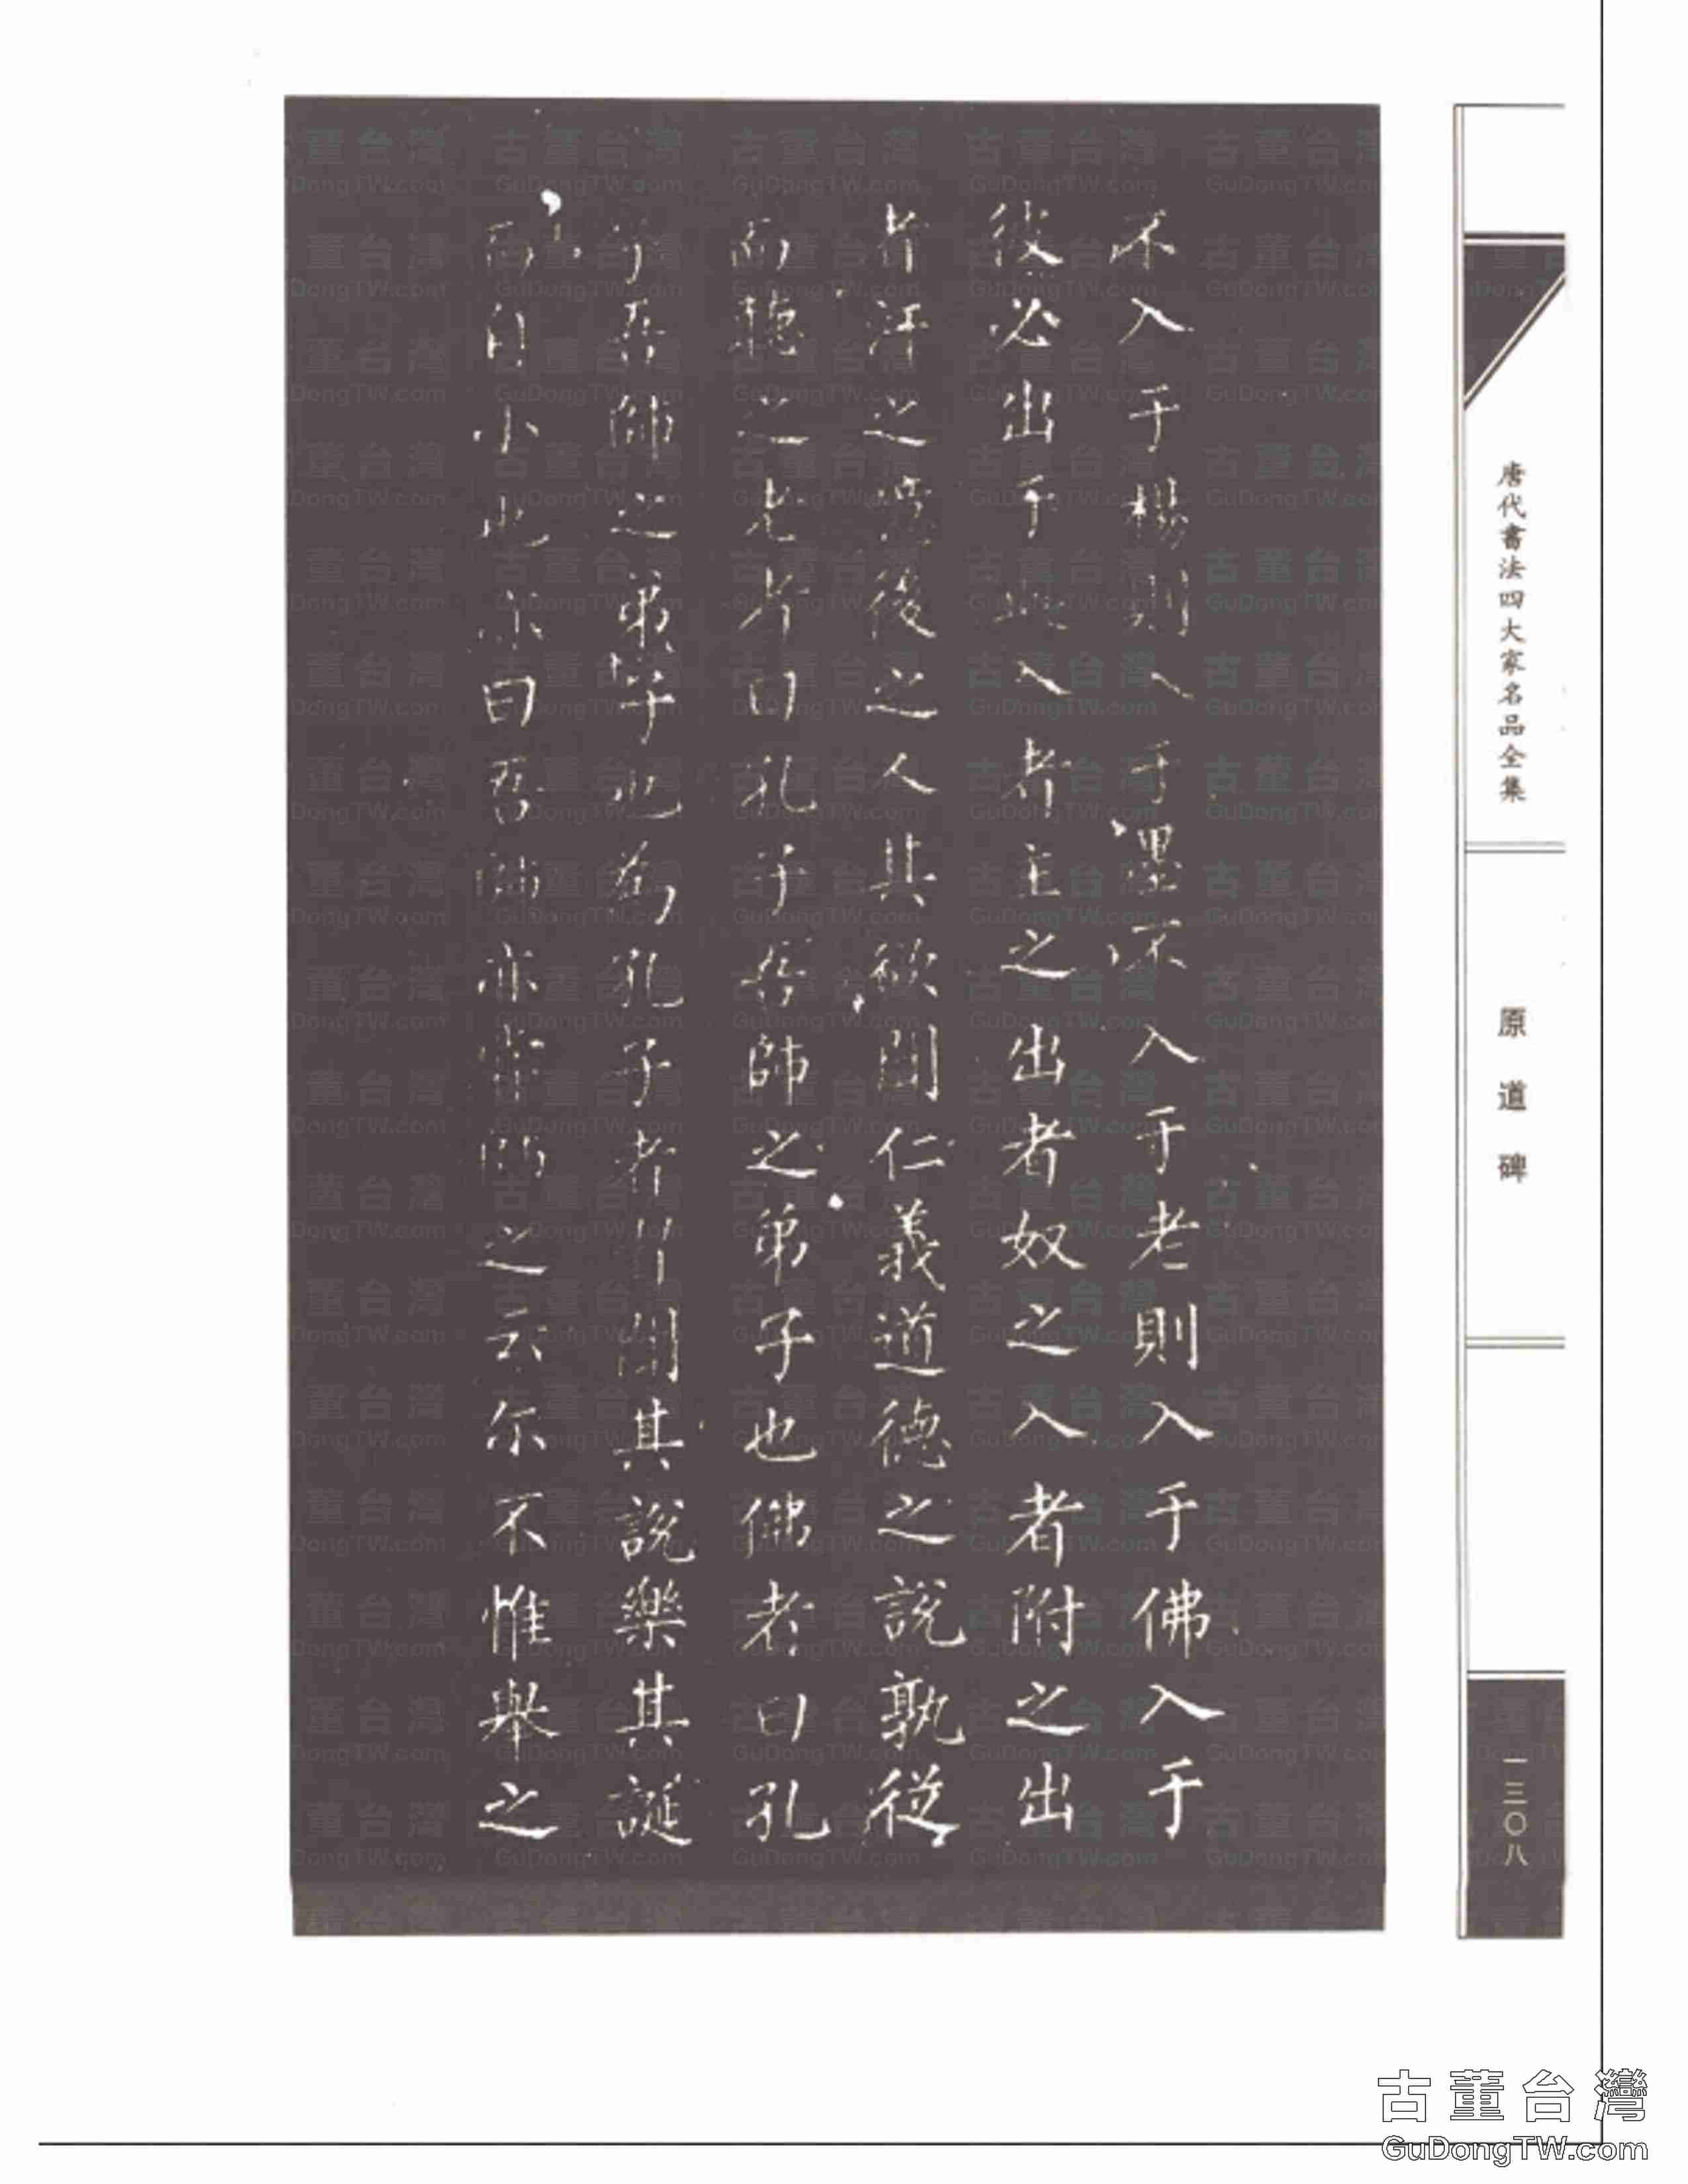 唐代書法四大家名品全集
原道碑
一三〇八
不入于楊則入于墨不入于老則入于佛入于
彼必出于此入者主之出者奴之入者附之出
者汙之噫後之人其欲聞仁義道德之說孰從
而聽之老者曰孔子吾師之弟子也佛者曰孔
子吾師之弟子也為孔子者習聞其說樂其誕
而自小也亦曰吾師亦嘗師之云尔不惟舉之
古董台灣
GuDongTW.com